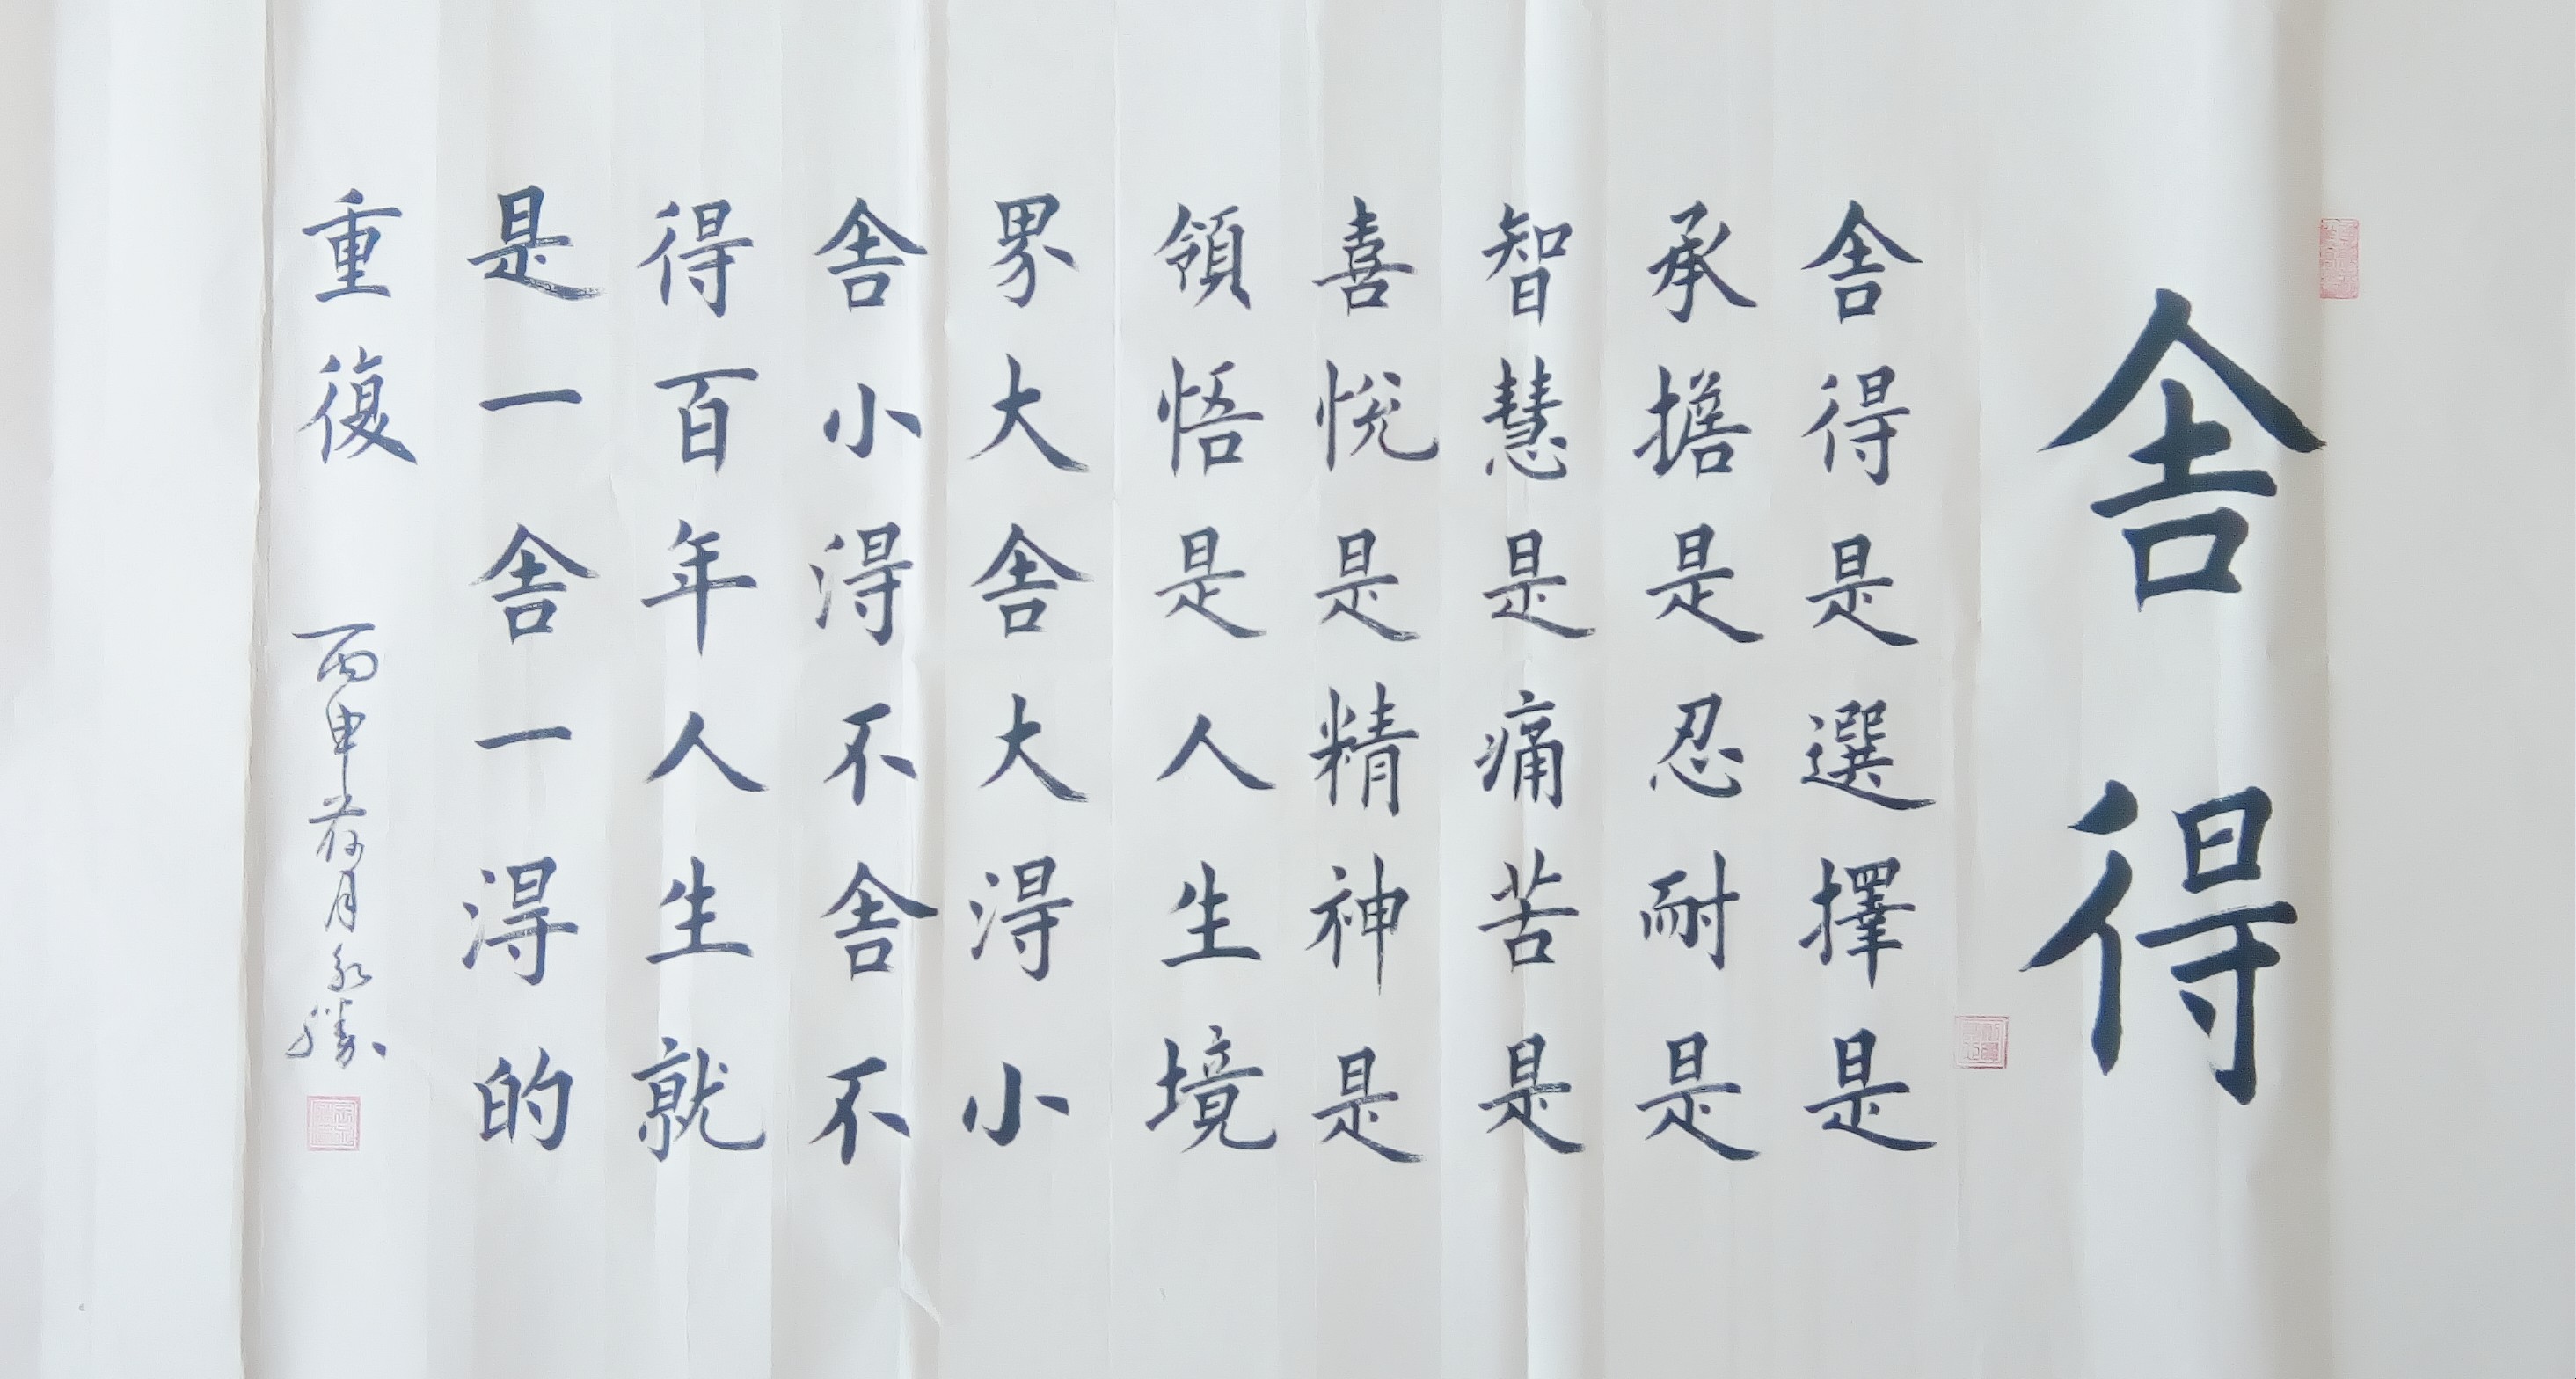 舍得
舍得是選擇是
承擔是忍耐是
智慧是痛苦是
喜悅是精神是
領悟是人生境
界大舍大得小
舍小得不舍不
得百年人生就
是一舍一得的
重復 丙申荷月永勝